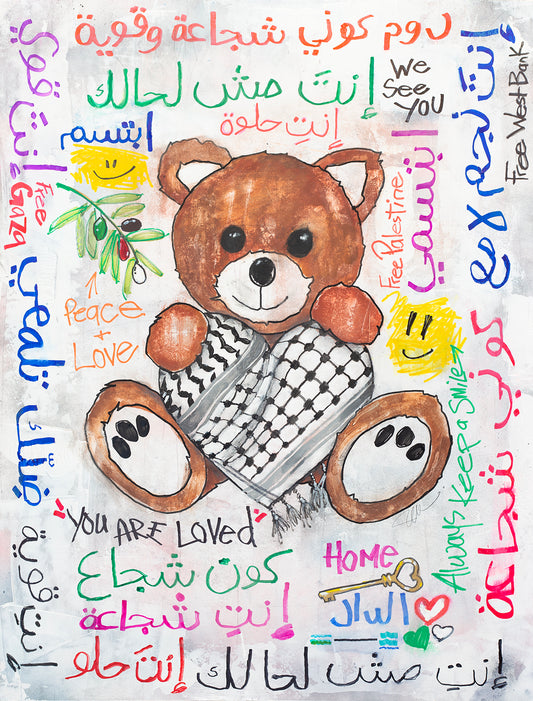 دوم كوني شجاعة وقوية
إنتَ مش لحالك
We
See
YOU
إنتِ حلوة
ابتسم
إنتَ قوي
Free
Gaza
Peace
+
Love
ضِلّك تلمعي
إنتِ قوية
ابتسمي
Free Palestine
إنتَ نجم لامع
Free West Bank
كوني شجاعة
Always Keep a Smile
"YOU ARE Loved"
كون شجاع
إنتِ شجاعة
HOME
الدار
إنتِ مش لحالك
إنتَ حلو